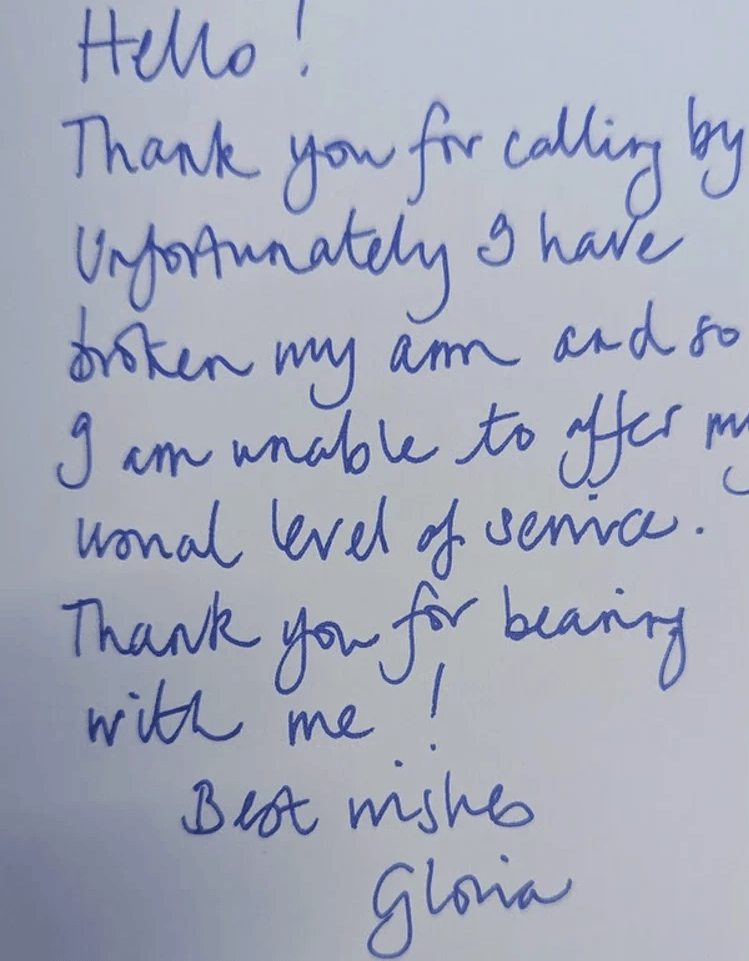 Hello!
Thank you for calling by
Unfortunately I have
broken my arm and so
I am unable to offer my
usual level of service.
Thank you for bearing
with me!
Best wishes
Gloria